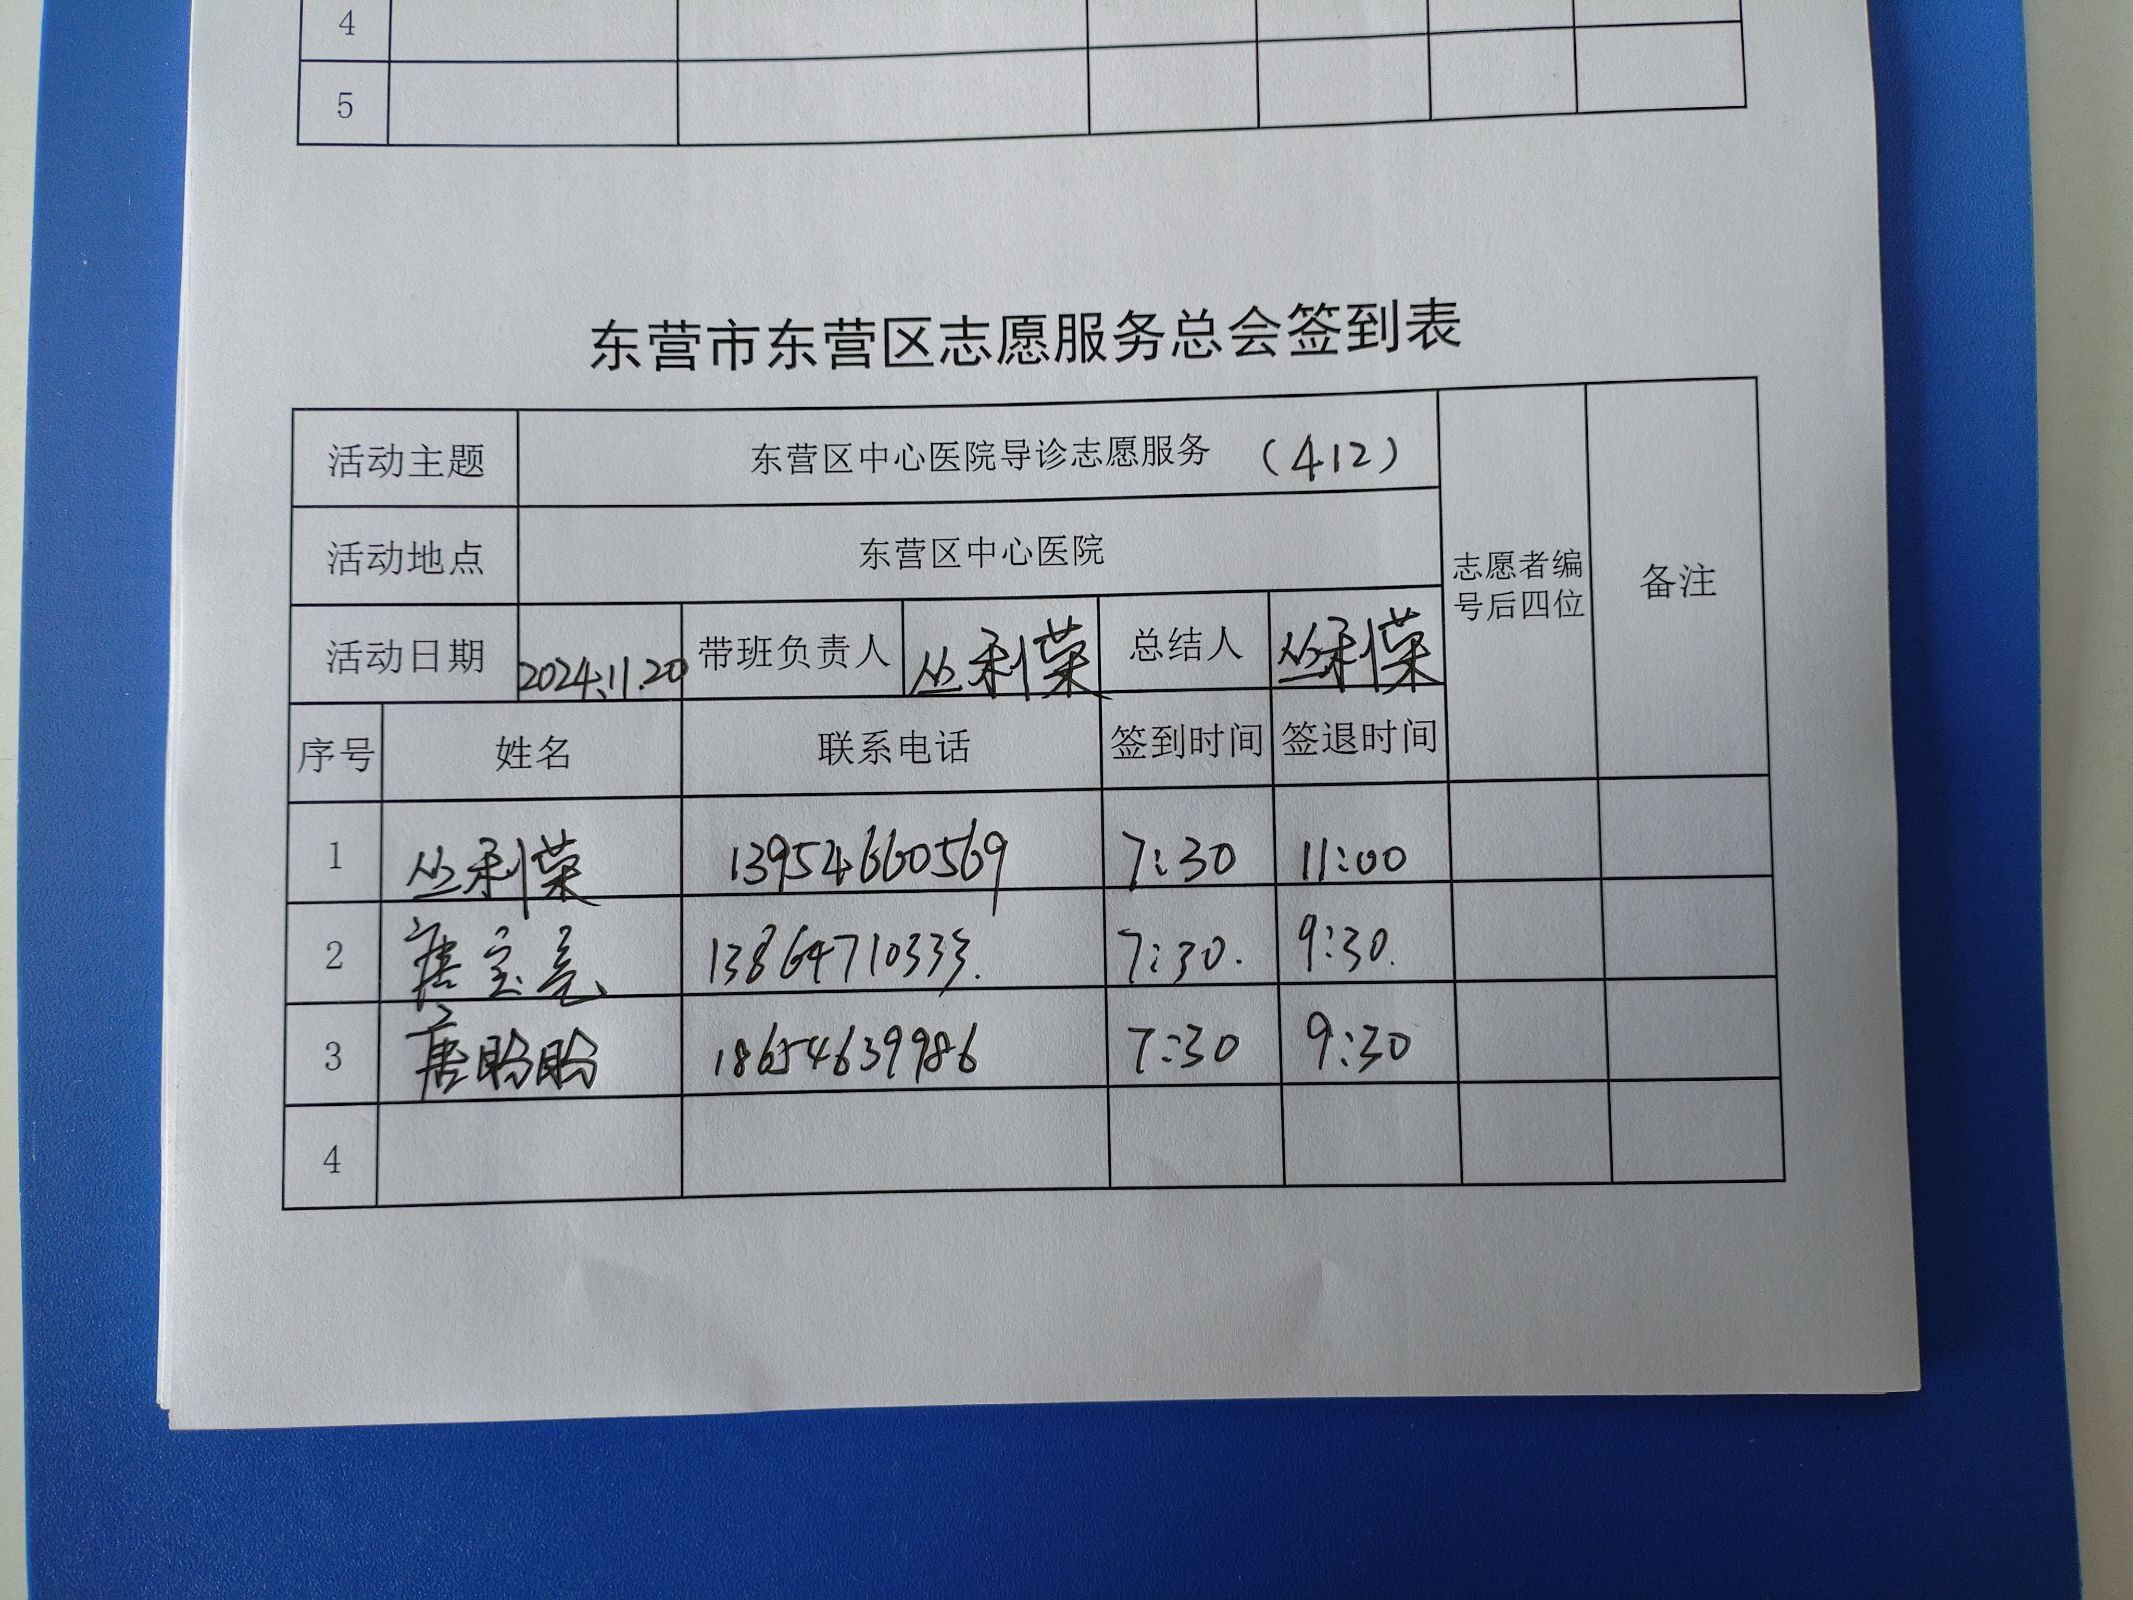 4
5
东营市东营区志愿服务总会签到表
活动主题 东营区中心医院导诊志愿服务 (412)
活动地点 东营区中心医院
志愿者编号后四位 备注
活动日期 2024.11.20 带班负责人 丛利荣 总结人 丛利荣
序号 姓名 联系电话 签到时间 签退时间
1 丛利荣 13954660569 7:30 11:00
2 唐宝亮 13864710333. 7:30. 9:30.
3 唐盼盼 18654639986 7:30 9:30
4